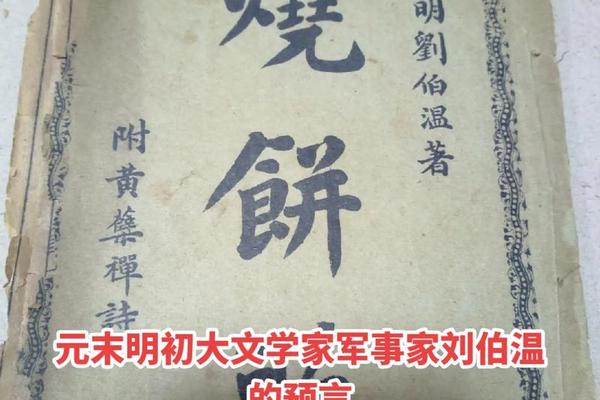 明劉伯温著
燒餅
附黄蘗禪詩
元末明初大文学家军事家刘伯温
的预言